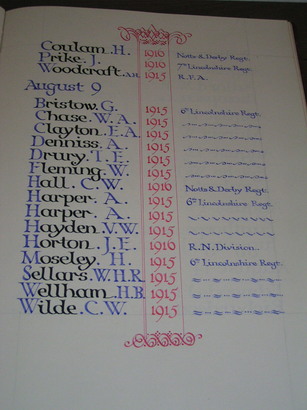 Coulam. H. 1916 Notts & Derby Regt.
Prike. J. 1916 7th Lincolnshire Regt.
Woodcraft. A.H. 1915 R.F.A.
August 9
Bristow. G. 1915 6th Lincolnshire Regt.
Chase. W. A. 1915
Clayton. E. A. 1915
Denniss. A. 1915
Drury. T. E. 1915
Fleming. W. 1915
Hall. C. W. 1916 Notts & Derby Regt.
Harper. A. 1915 6th Lincolnshire Regt.
Harper. A. 1915
Hayden. V. W. 1915
Horton. J. E. 1916 R.N. Division.
Moseley. H. 1915 6th Lincolnshire Regt.
Sellars. W. H. R. 1915
Wellham. H. B. 1915
Wilde. C. W. 1915